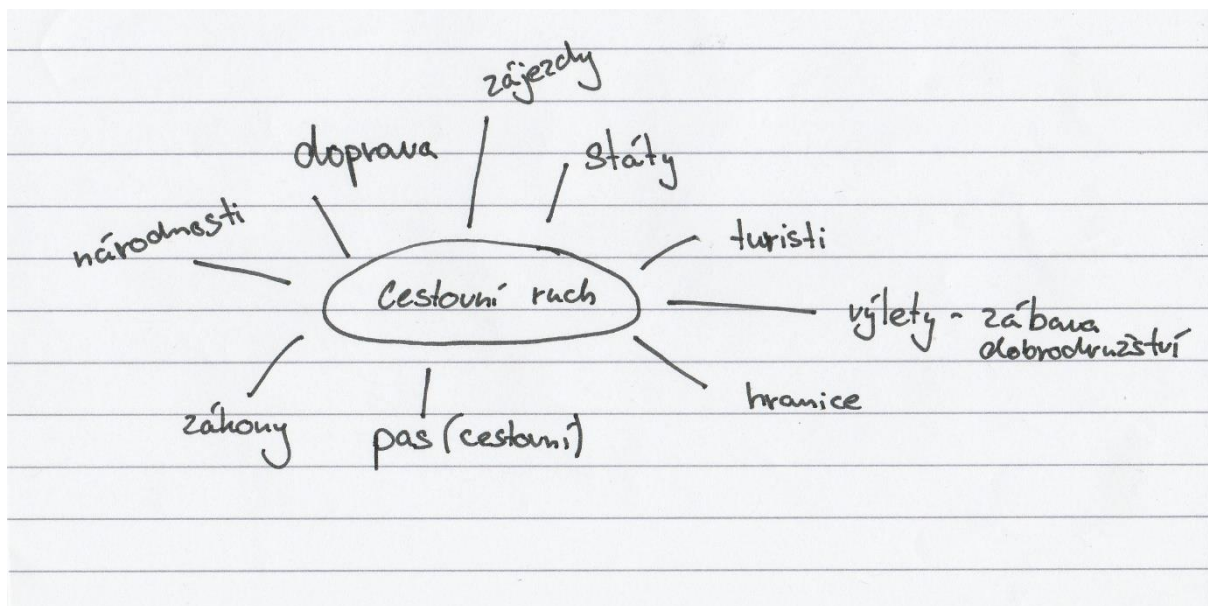 zájezdy
doprava
státy
národnosti
turisti
cestovní ruch
výlety - zábava
dobrodružství
hranice
zákony
pas (cestovní)